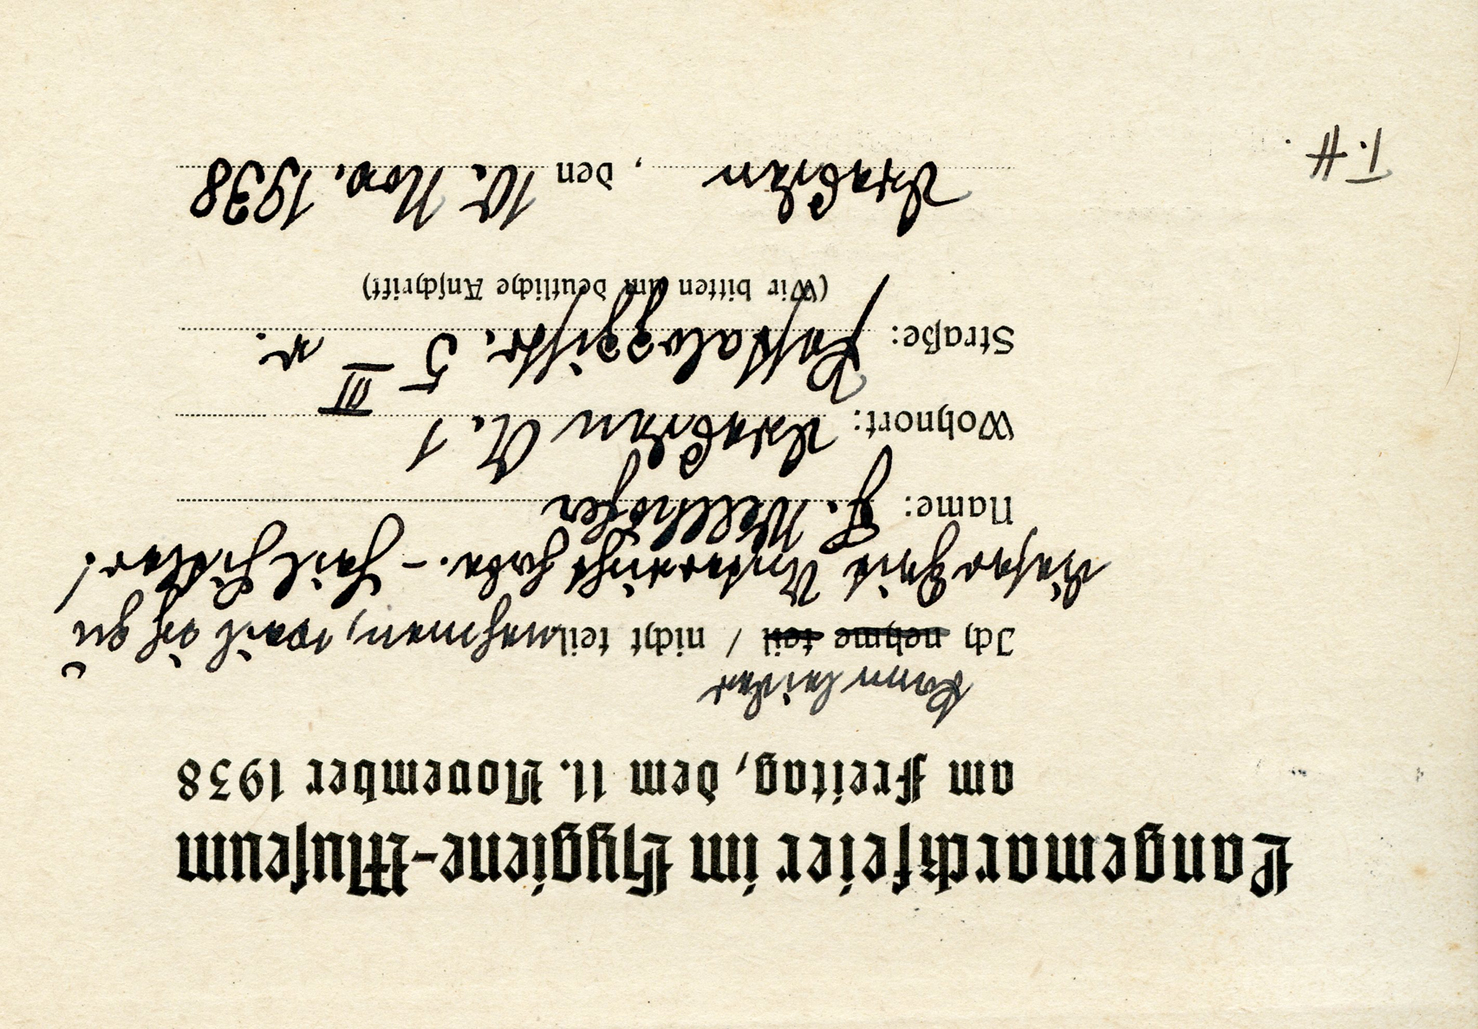 Langemarckfeier im Hygiene-Museum
am Freitag, dem 11. November 1938
kann leider
Ich nehme teil / nicht teilnehmen, weil ich zu
dieser Zeit Unterricht habe. – Heil Hitler!
Name: J. Wellhöfer
Wohnort: Dresden A. 1
Straße: Pestalozzistr. 5 III r.
(Wir bitten um deutliche Anschrift)
Dresden, den 10. Nov. 1938
T. H.